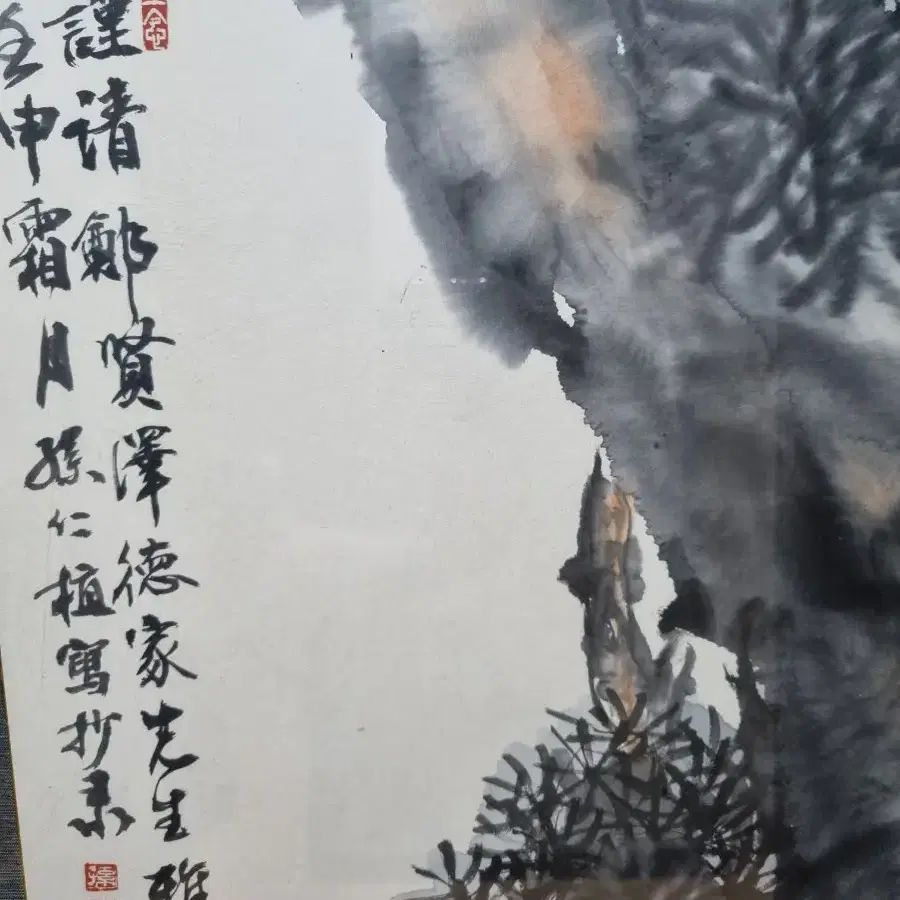 謹請鄭賢澤德家先生雅
壬申霜月孫仁植寫抄录
孫